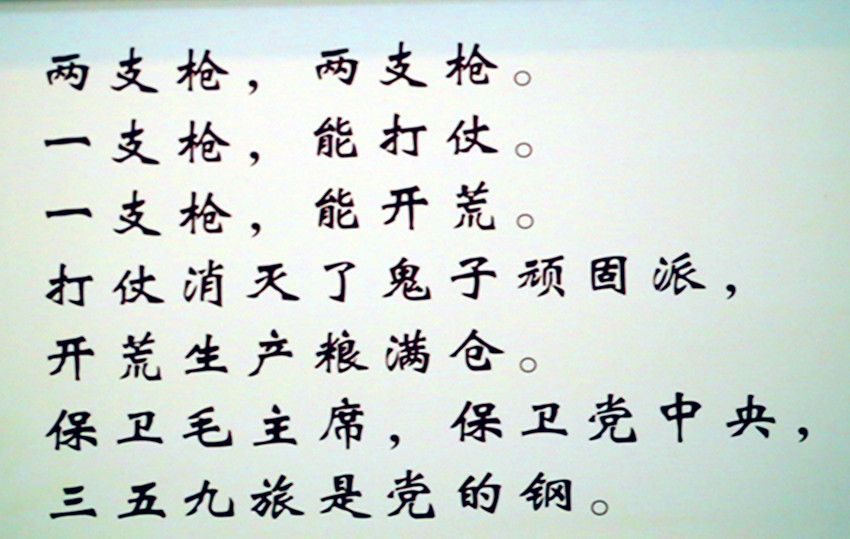 两支枪，两支枪。
一支枪，能打仗。
一支枪，能开荒。
打仗消灭了鬼子顽固派，
开荒生产粮满仓。
保卫毛主席，保卫党中央，
三五九旅是党的钢。